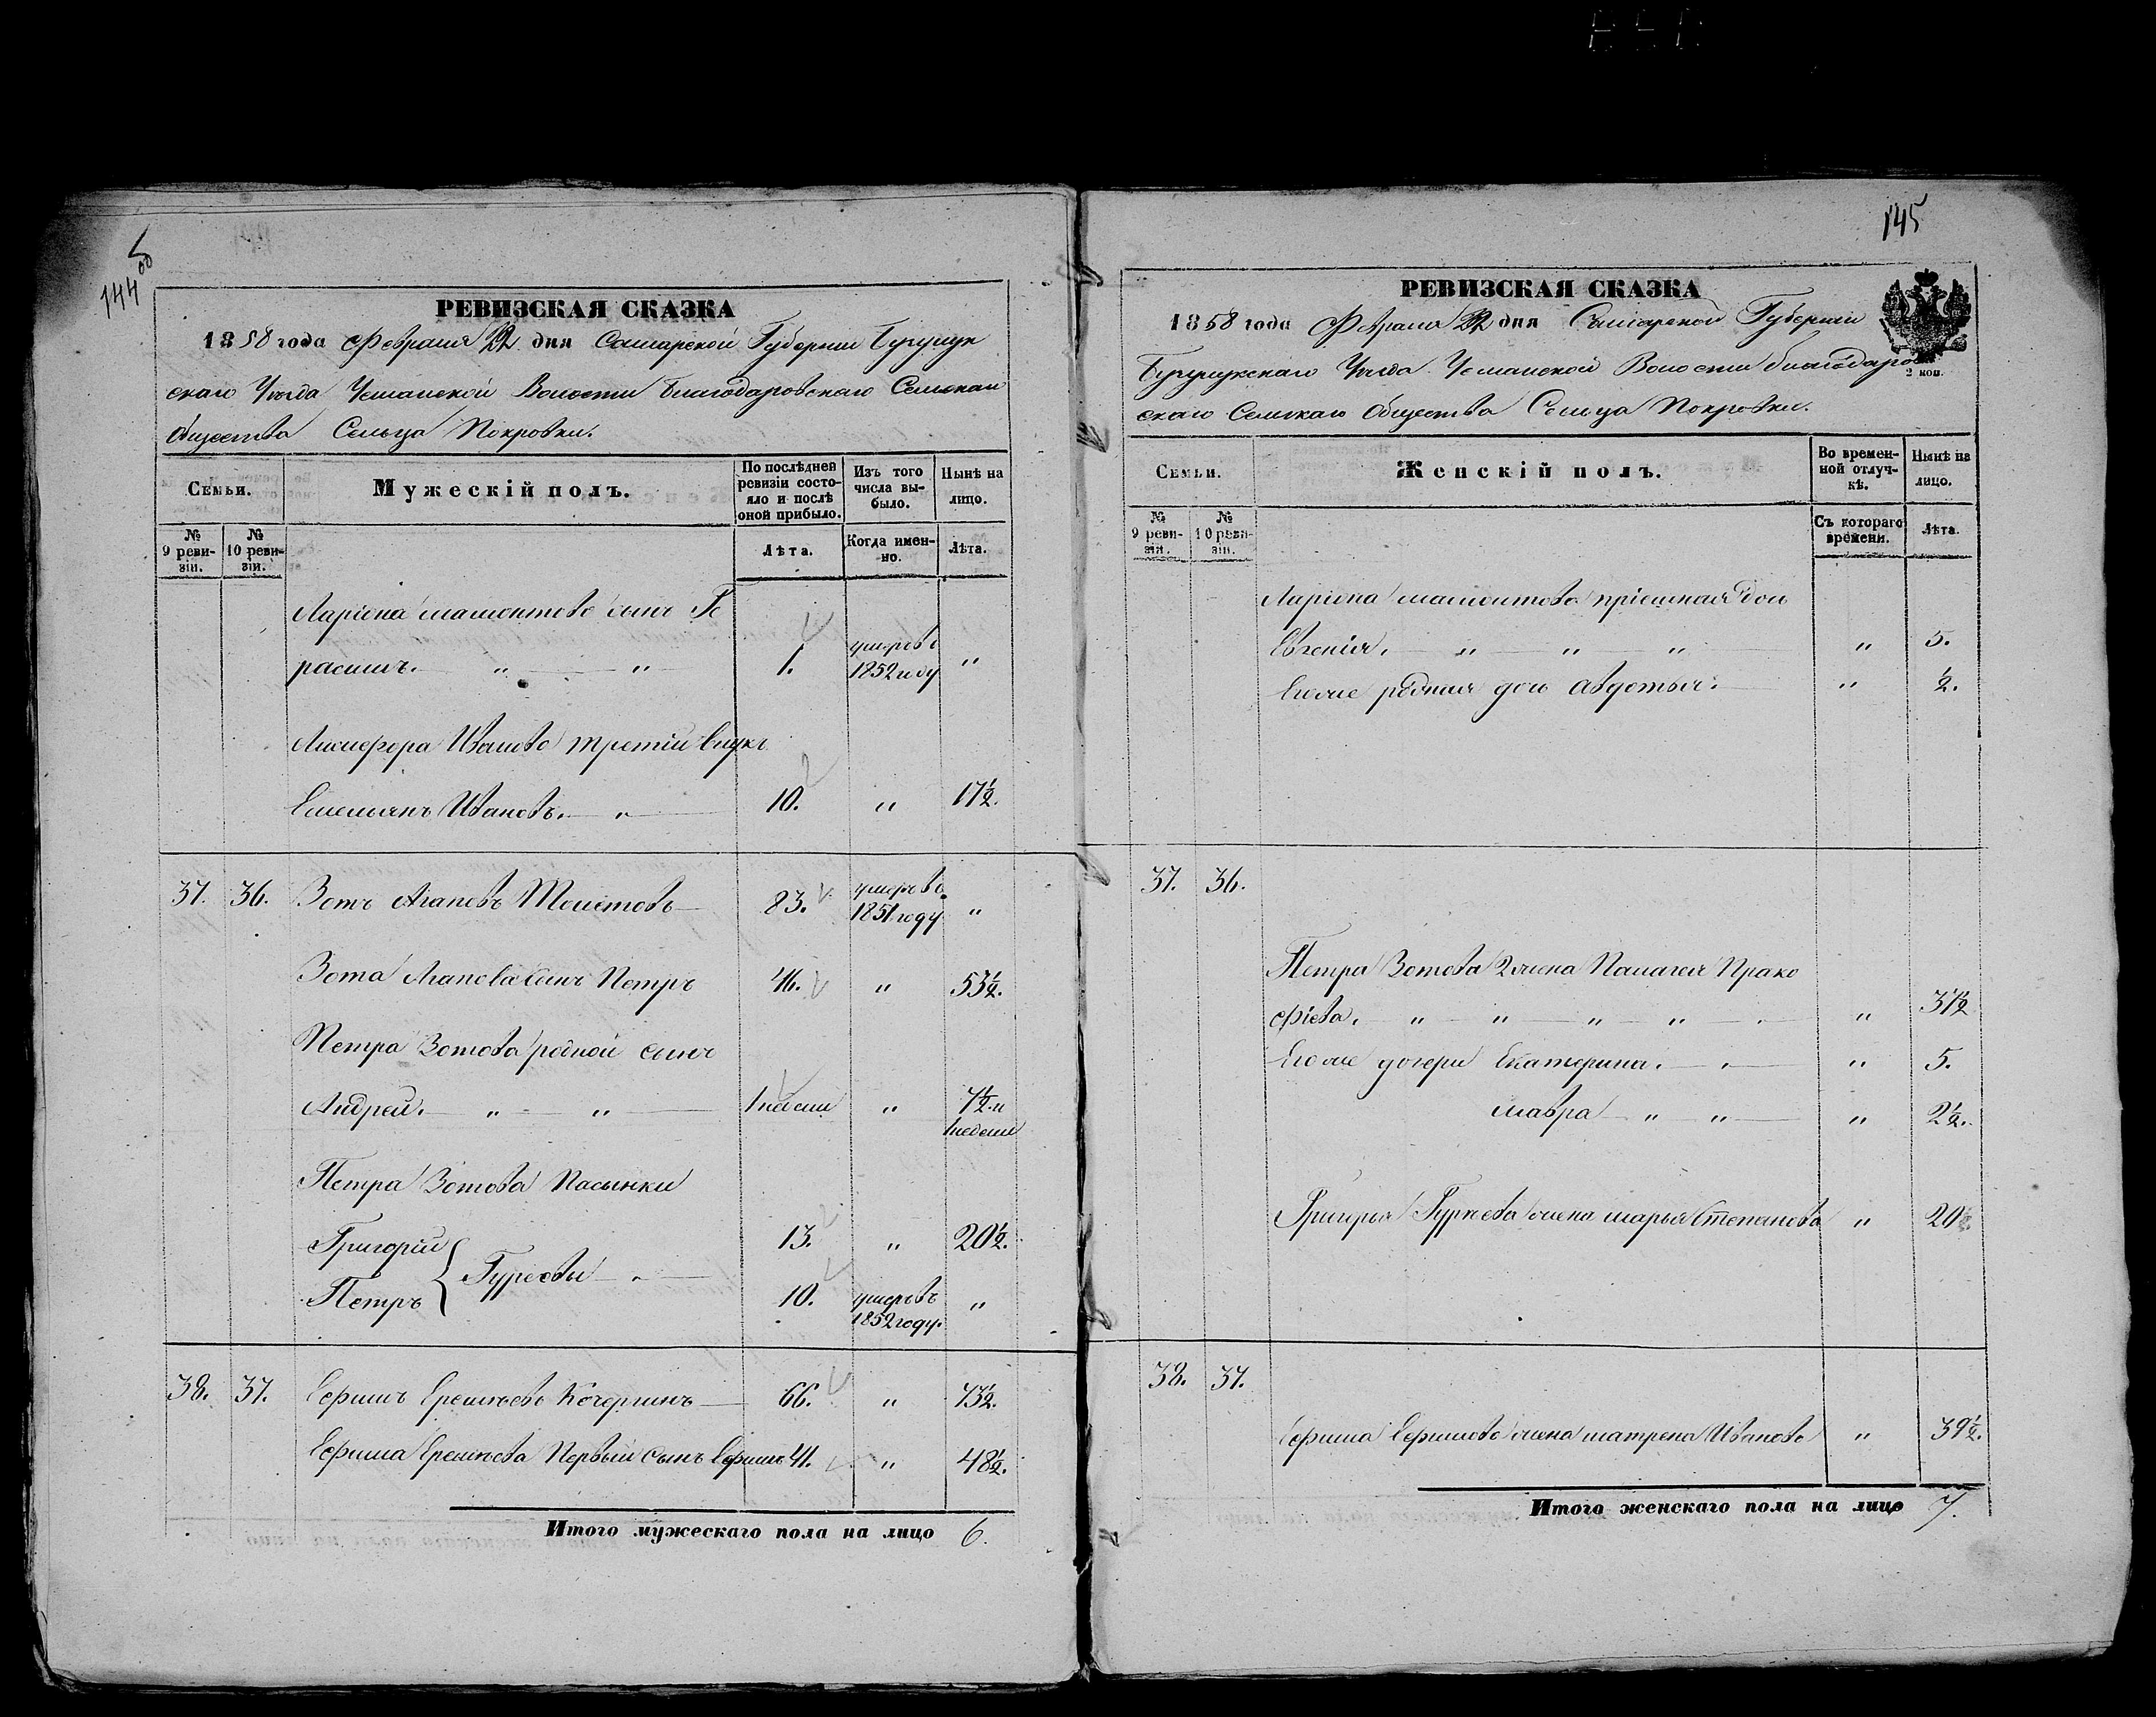 144 об
РЕВИЗСКАЯ СКАЗКА
1858 года Февраля 22 дня Самарской Губернии Бугурук
скаго Уезда Чеманской Волости Благодаровскаго Селскаго
Общества Сельца Покровки.
Семьи.
Мужескій полъ.
По послѣдней ревизіи состо-
яло и послѣ оной прибыло.
Изъ того числа вы-
было.
Нынѣ на лицо.
№ 9 реви-
зіи.
№ 10 реви-
зіи.
Лѣта.
Когда имен-
но.
Лѣта.
Ларіона Мамонтова сынъ Ге
расимъ. „ „ 1. умеръ въ 1852 году „
Никифора Иванова третій внукъ
Емельянъ Ивановъ. „ 10. „ 17½.
37. 36. Зотъ Агаповъ 83. умеръ въ 1851 году „
Зота Агапова сынъ Петръ 46. „ 53½.
Петра Зотова родной сынъ
Андрей. „ „ 1 недели „ 7½ и
1 недели
Петра Зотова Пасынки
Григорій 13. „ 20½.
Гурьевы „
Петръ 10. умеръ въ 1852 году. „
38. 37. Ефимъ Еремѣевъ Кочергинъ 66. „ 73½.
Ефима Еремѣева Первый сынъ Ефимъ 41. „ 48½.
Итого мужескаго пола на лицо 6.
145
РЕВИЗСКАЯ СКАЗКА
1858 года Февраля 22 дня Самарской Губернии
Уезда Чеманской Волости Благодаров
скаго Селскаго Общества Сельца Покровки.
2 коп.
Семьи.
Женскій полъ.
Во времен-
ной отлуч-
кѣ.
Нынѣ на лицо.
№ 9 реви-
зіи.
№ 10 реви-
зіи.
Съ котораго времени.
Лѣта.
Ларіона Мамонтова пріемная дочь
Евгенія. „ „ „ „ 5.
Его же родная дочь Авдотья. „ ½.
37. 36.
Петра Зотова 2 жена Палагея Прако
фіева. „ „ „ „ „ 37½
Его же дочери Екатерина. „ 5.
Мавра „ „ „ 2½.
Григорья Гурьева жена Марья Степанова „ 20½.
38. 37.
Ефима Ефимова жена Матрена Иванова „ 39½.
Итого женскаго пола на лицо 7.